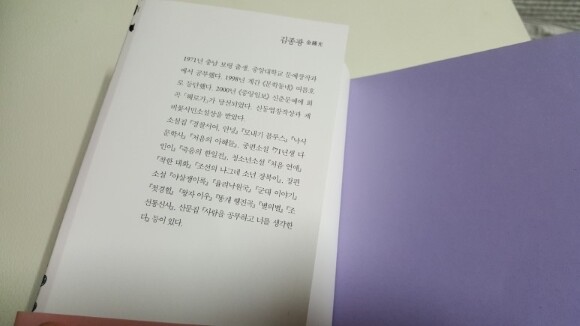 김종광 金鍾光
1971년 충남 보령 출생. 중앙대학교 문예창작과
에서 공부했다. 1998년 계간 《문학동네》 여름호
로 등단했다. 2000년 《중앙일보》 신춘문예에 희
곡 「해로가」가 당선되었다. 신동엽창작상과 제
비꽃서민소설상을 받았다.
소설집 『경찰서여, 안녕』 『모내기 블루스』 『낙서
문학사』 『처음의 아해들』, 중편소설 『71년생 다
인이』 『죽음의 한일전』, 청소년소설 『처음 연애』
『착한 대화』 『조선의 나그네 소년 장복이』, 장편
소설 『야살쟁이록』 『율려낙원국』 『군대 이야기』
『첫경험』 『왕자 이우』 『똥개 행진곡』 『별의별』 『조
선통신사』, 산문집 『사람을 공부하고 너를 생각한
다』 등이 있다.